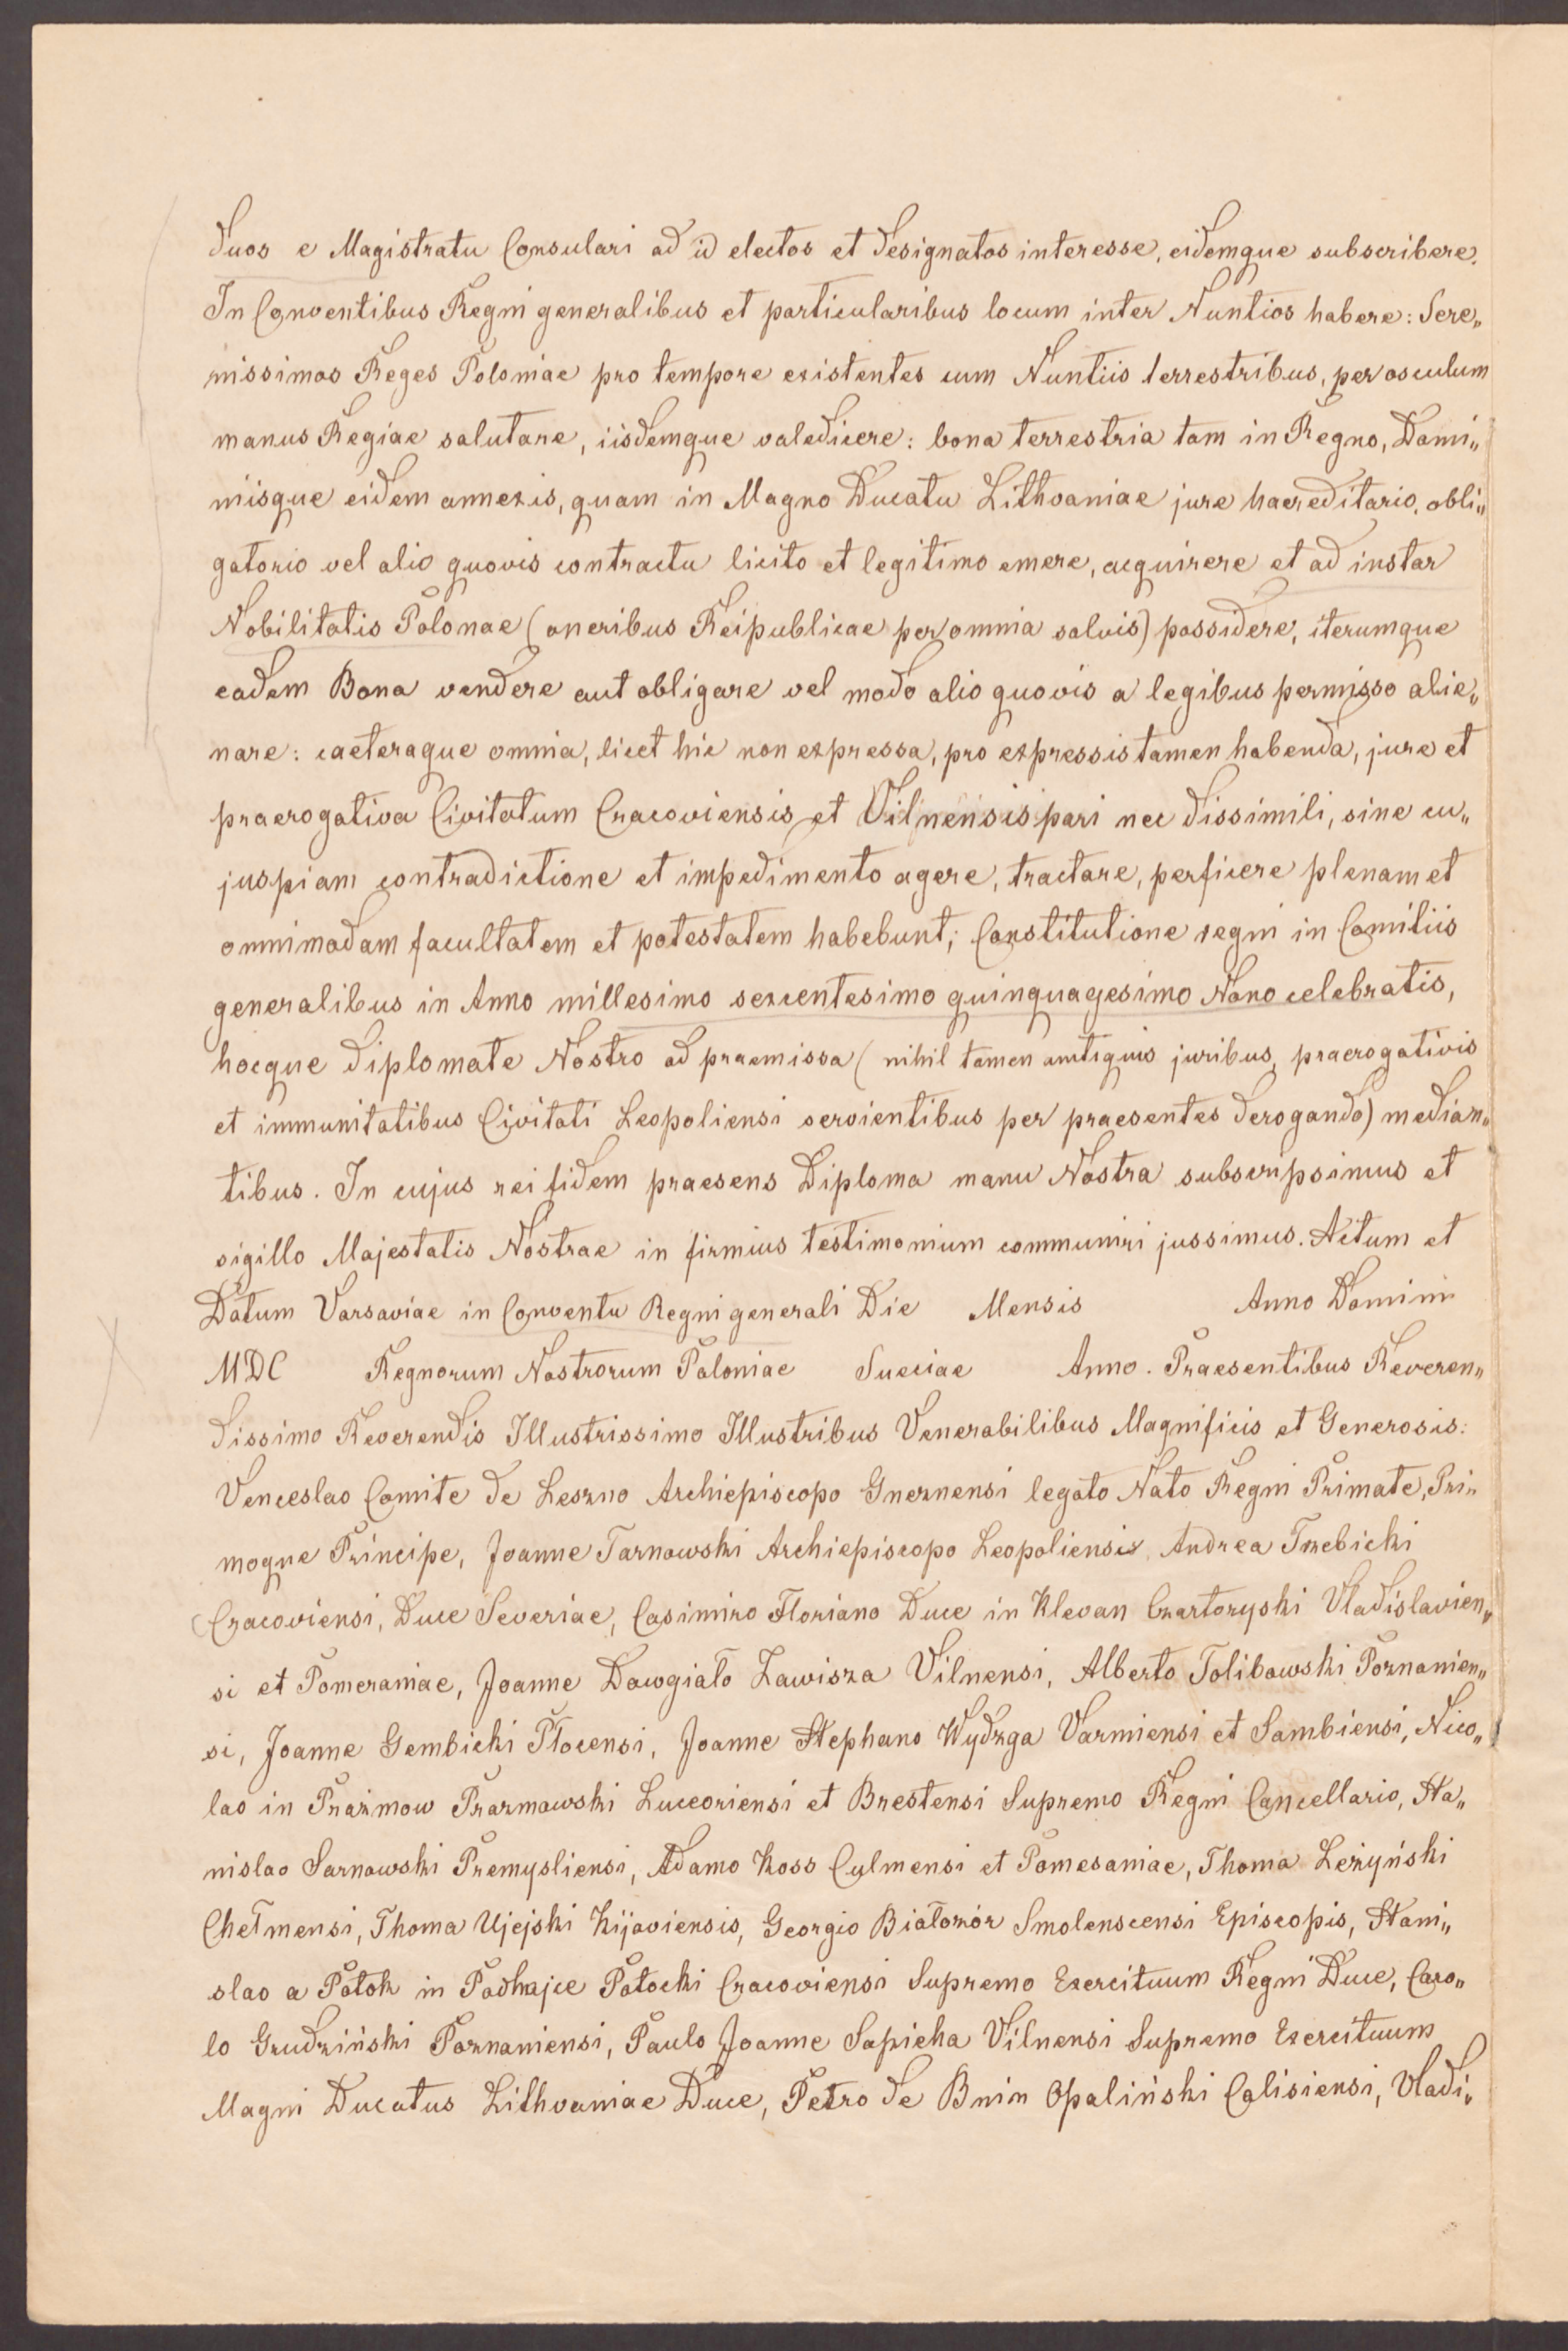 duos e Magistratu Consulari ad id electos et designatos interesse, eidemque subscribere.
In Conventibus Regni generalibus et particularibus locum inter Nuntios habere: Sere„
nissimos Reges Poloniae pro tempore existentes cum Nuntiis terrestribus, per osculum
manus Regiae salutare, iisdemque valedicere: bona terrestria tam in Regno, Domi„
niisque eidem annexis, quam in Magno Ducatu Lithvaniae jure haereditario, obli„
gatorio vel alio quovis contractu licito et legitimo emere, acquirere et ad instar
Nobilitatis Polonae (oneribus Reipublicae per omnia salvis) possidere, iterumque
eadem Bona vendere aut obligare vel modo alio quovis a legibus permisso alie„
nare: caeteraque omnia, licet hic non expressa, pro expressis tamen habenda, jure et
praerogativa Civitatum Cracoviensis et Vilnensis pari nec dissimili, sine cu„
juspiam contradictione et impedimento agere, tractare, perficere plenam et
omnimodam facultatem et potestatem habebunt; Constitutione regni in Comitiis
generalibus in Anno millesimo sexcentesimo quinquagesimo Nono celebratis,
hocque diplomate Nostro ad praemissa (nihil tamen antiquis juribus, praerogativis
et immunitatibus Civitati Leopoliensi servientibus per praesentes derogando) median„
tibus. In cujus rei fidem praesens Diploma manu Nostra subscripsimus et
sigillo Majestatis Nostrae in firmius testimonium communiri jussimus. Actum et
Datum Varsaviae in Conventu Regni generali Die Mensis Anno Domini
MDC Regnorum Nostrorum Poloniae Sueciae Anno. Praesentibus Reveren„
dissimo Reverendis Illustrissimo Illustribus Venerabilibus Magnificis et Generosis:
Venceslao Comite de Leszno Archiepiscopo Gneznensi legato Nato Regni Primate, Pri„
moque Principe, Joanne Tarnowski Archiepiscopo Leopoliensis Andrea Trzebicki
Cracoviensi, Duce Severiae, Casimiro Floriano Duce in Klevan Czartoryski Vladislavien„
si et Pomeraniae, Joanne Dowgiało Zawisza Vilnensi, Alberto Tolibowski Poznanien„
si, Joanne Gembicki Płocensi, Joanne Stephano Wydzga Varmiensi et Sambiensi, Nico„
lao in Prażmow Prazmowski Luceoriensi et Brestensi Supremo Regni Cancellario, Sta„
nislao Sarnowski Premysliensi, Adamo Koss Culmensi et Pomesaniae, Thoma Leżyński
Chełmensi, Thoma Ujejski Kijoviensis, Georgio Białozór Smolenscensi Episcopis, Stani„
slao a Potok in Podhajce Potocki Cracoviensi Supremo Exercituum Regni Duce, Caro„
lo Grudziński Poznaniensi, Paulo Joanne Sapieha Vilnensi Supremo Exercituum
Magni Ducatus Lithvaniae Duce, Petro de Bnin Opaliński Calisiensi, Vladi„